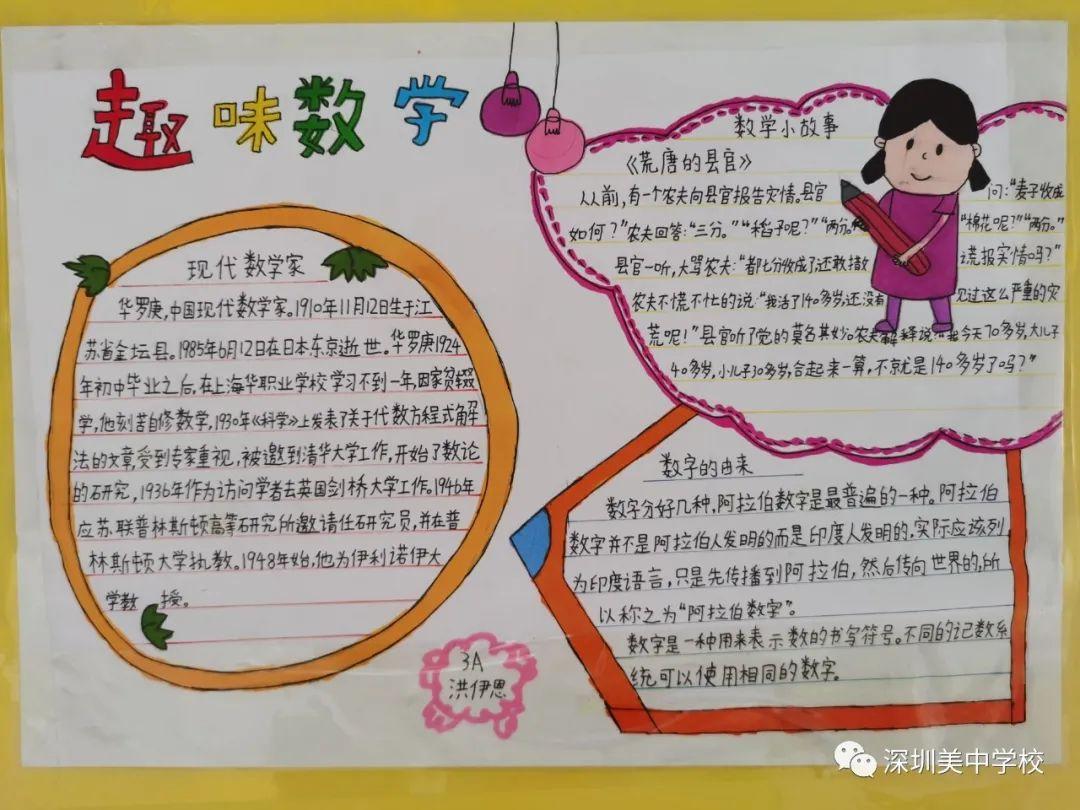 趣味数学
现代数学家
华罗庚,中国现代数学家。1910年11月12日生于江
苏省金坛县。1985年6月12日在日本东京逝世。华罗庚1924
年初中毕业之后,在上海华职业学校学习不到一年,因家贫辍
学,他刻苦自修数学,1930年《科学》上发表了关于代数方程式解
法的文章,受到专家重视,被邀到清华大学工作,开始了数论
的研究,1936年作为访问学者去英国剑桥大学工作。1946年
应苏联普林斯顿高等研究所邀请任研究员,并在普
林斯顿大学执教。1948年始,他为伊利诺伊大
学教授。
数学小故事
《荒唐的县官》
人从前,有一个农夫向县官报告灾情。县官问:“麦子收成
如何?”农夫回答:“三分。”“稻子呢?”“两分。”“棉花呢?”“两分。”
县官一听,大骂农夫:“都七分收成了还敢撒谎报实情吗?”
农夫不慌不忙的说:“我活了140多岁,还没有见过这么严重的灾
荒呢!”县官听了觉的莫名其妙。农夫解释说:“我今天70多岁,大儿子
40多岁,小儿子30多岁,合起来一算,不京就是140多岁了吗?”
数字的由来
数字分好几种,阿拉伯数字是最普遍的一种。阿拉伯
数字并不是阿拉伯人发明的而是印度人发明的,实际应该列
为印度语言,只是先传播到阿拉伯,然后传向世界的,所
以称之为“阿拉伯数字”。
数字是一种用来表示数的书写符号。不同的记数系
统可以使用相同的数字。
3A
洪伊恩
深圳美中学校